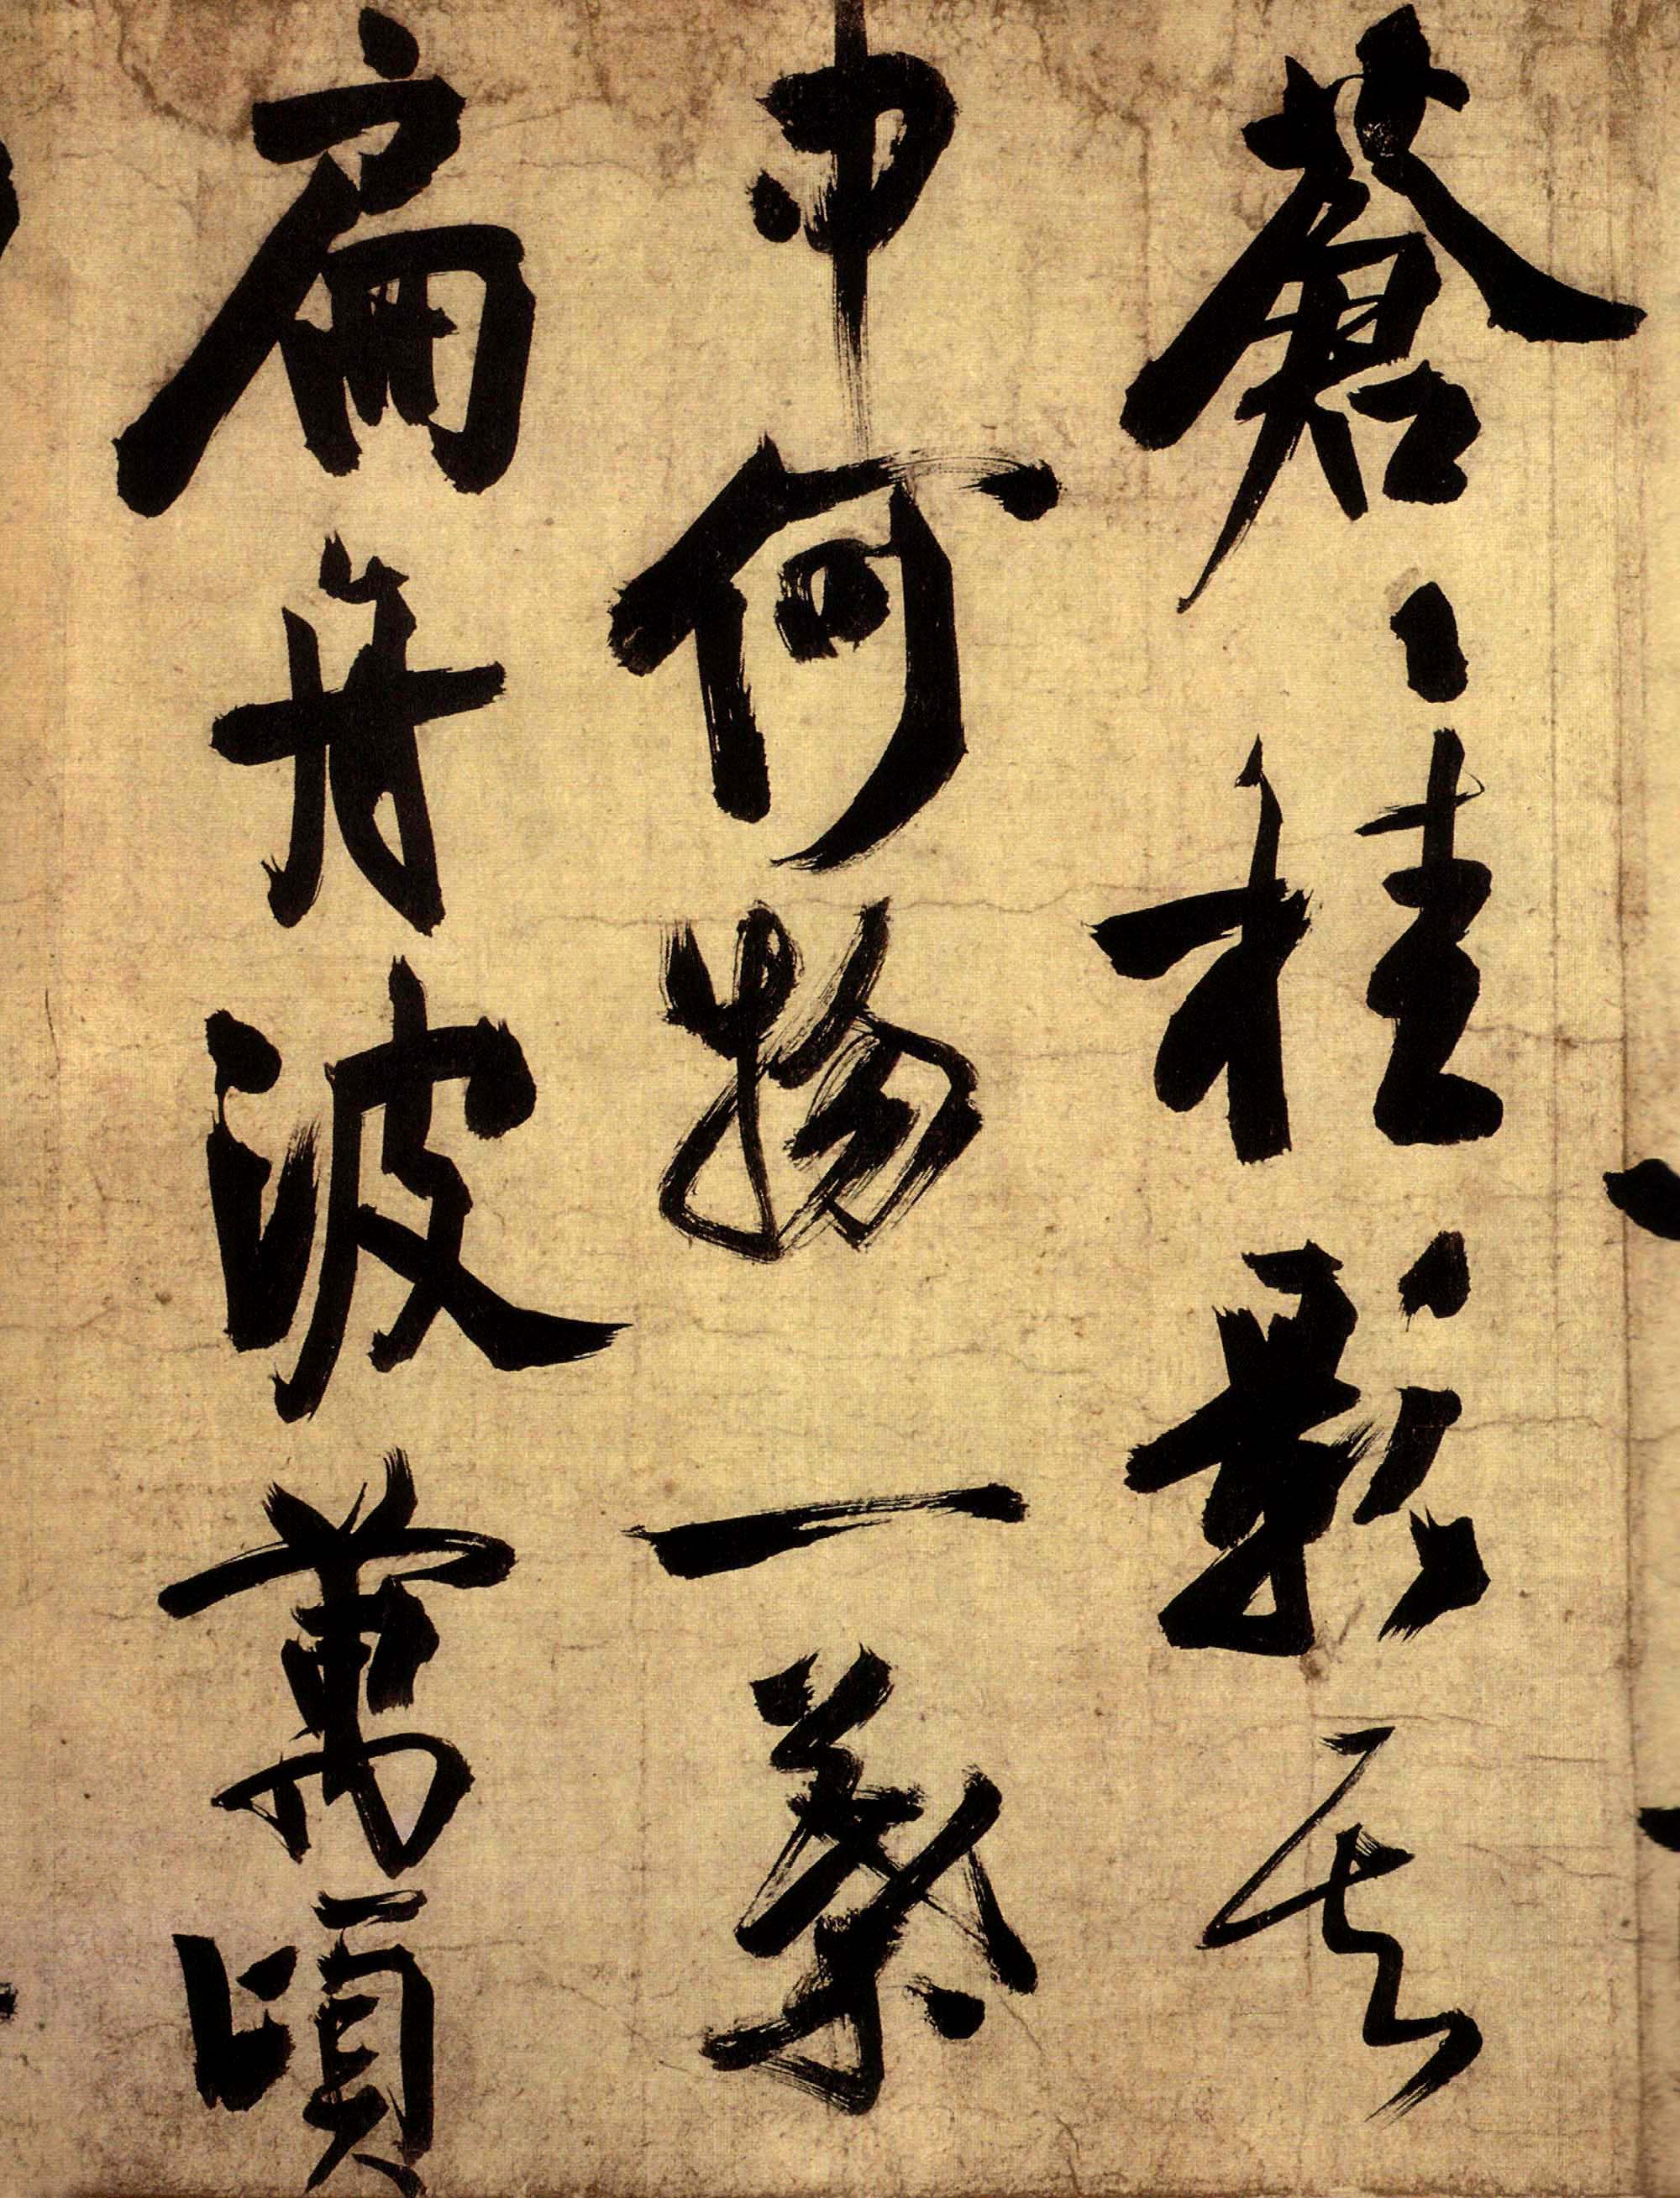 蒼々桂影其
中何物一葉
扁舟波萬頃